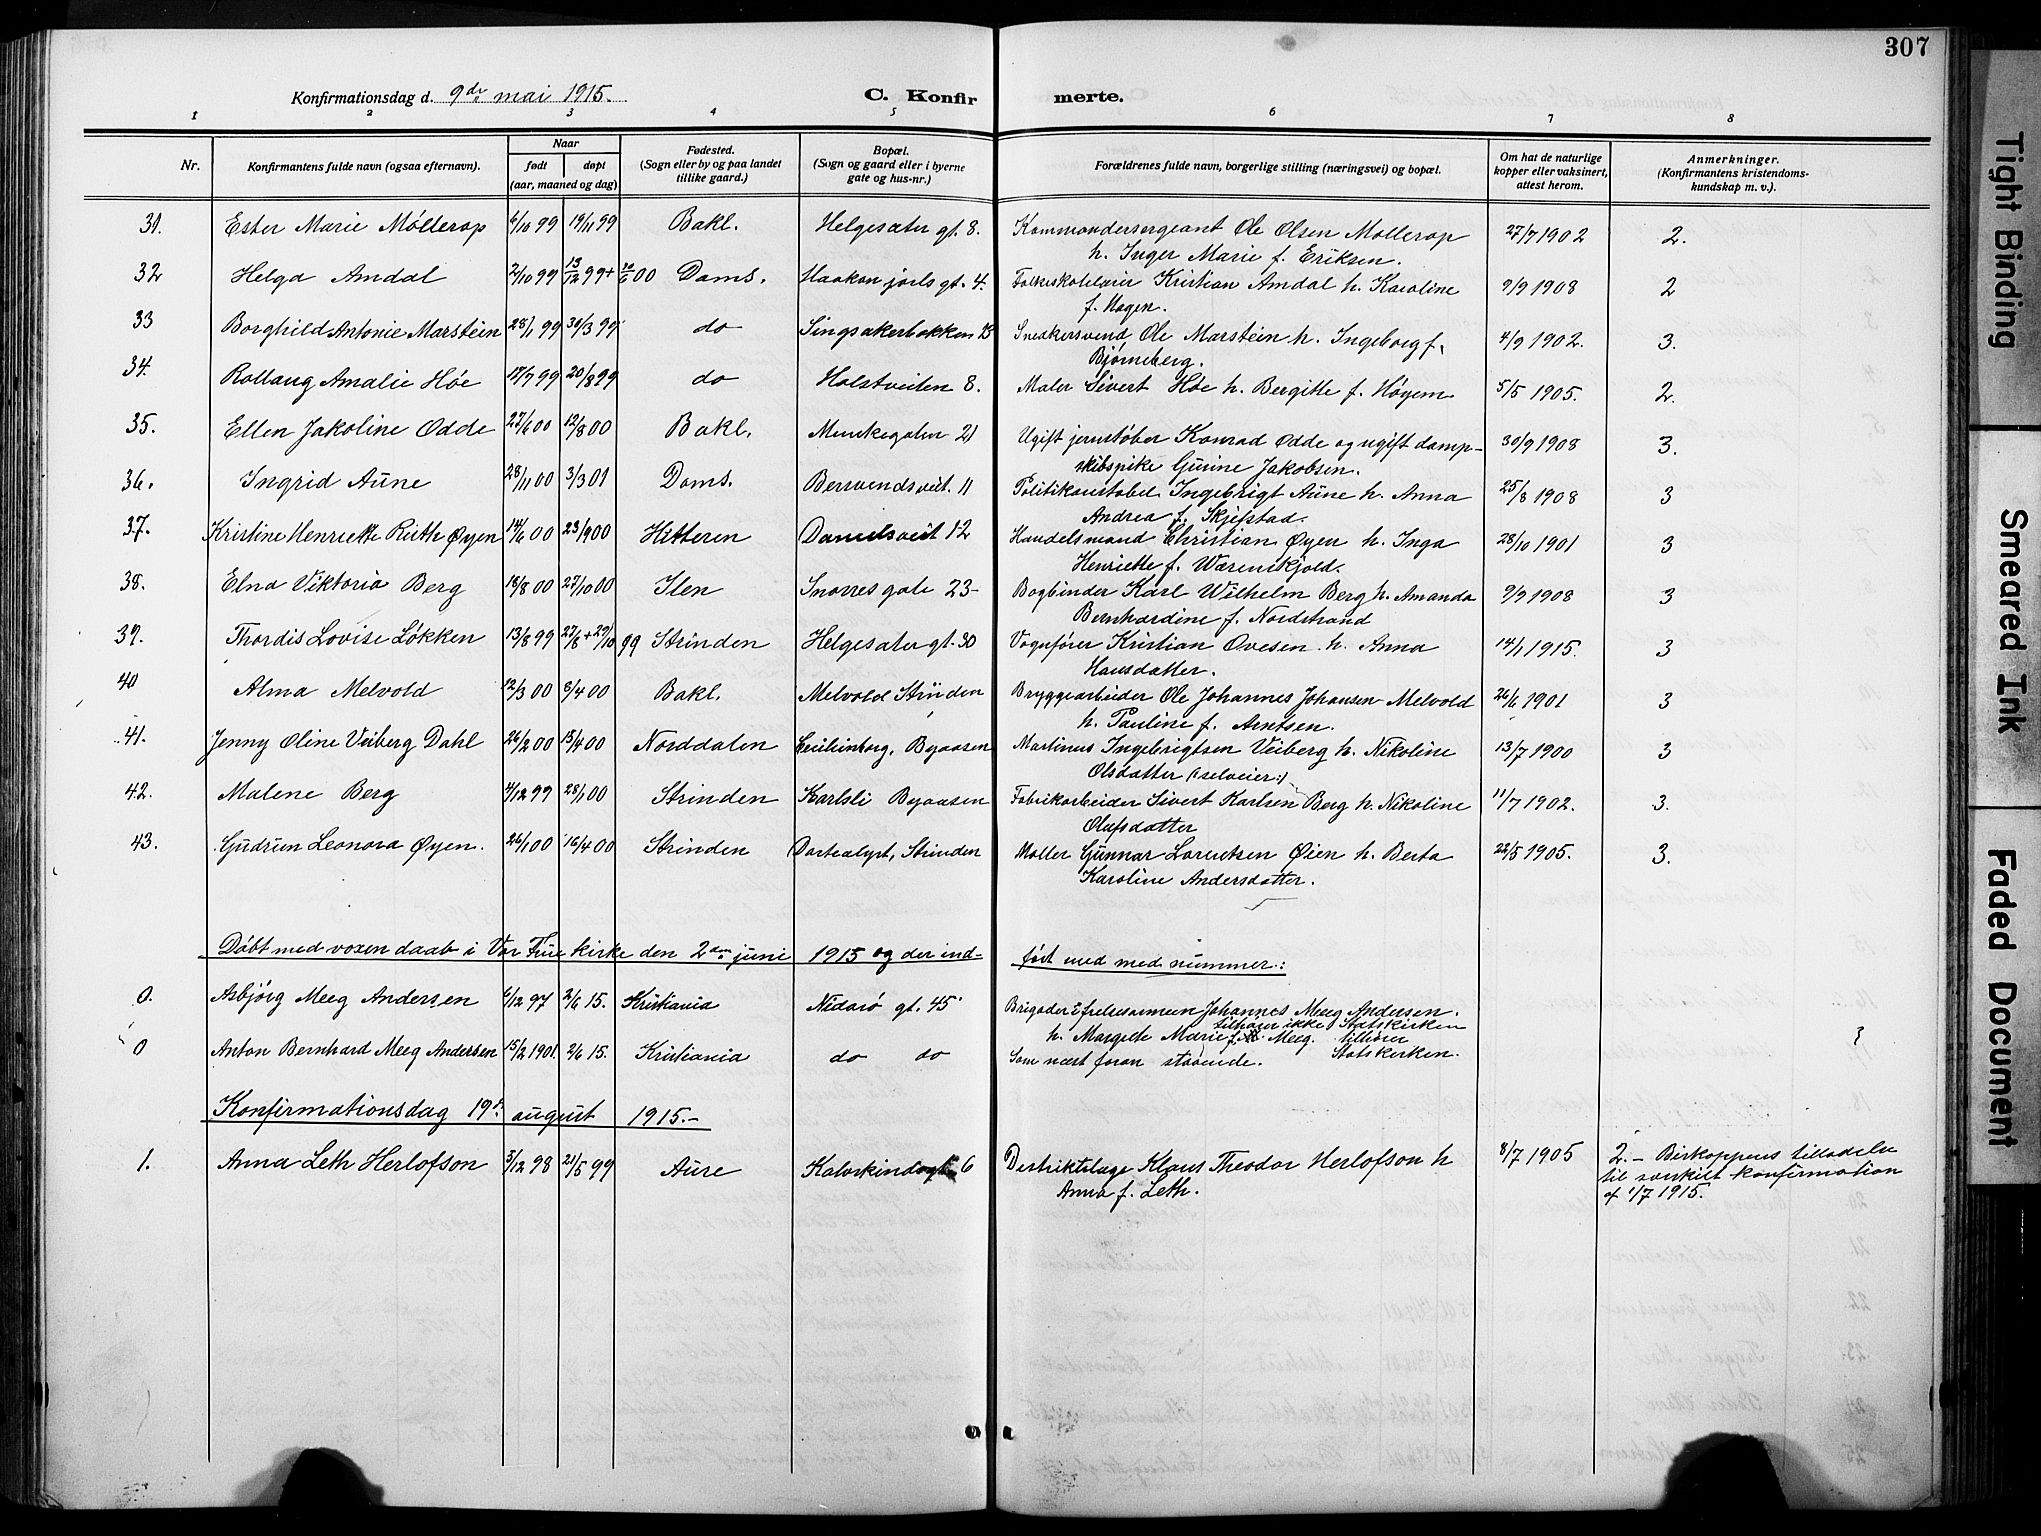 307
Konfirmationsdag d. 9de mai 1915.
C. Konfirmerte.
1 2 3 4 5 6 7 8
Nr. Konfirmantens fulde navn (ogsaa efternavn). Naar født døpt (aar, maaned og dag) Fødested. (Sogn eller by og paa landet tillike gaard.) Bopæl. (Sogn og gaard eller i byerne gate og hus-nr.) Forældrenes fulde navn, borgerlige stilling (næringsvei) og bopæl. Om hat de naturlige kopper eller vaksinert, attest herom. Anmerkninger. (Konfirmantens kristendomskundskap m. v.).
31. Ester Marie Möllerop 6/10 99 19/11 99 Bakl. Helgesæter gt. 8. Kommandersergeant Ole Olsen Møllerop 27/7 1902 2.
h. Inger Marie f. Eriksen.
32 Helga Amdal 2/10 99 13/12 99 + 20/6 00 Doms. Haakon jarls gt. 4. Folkeskolelærer Kristian Amdal h. Karoline 9/9 1908 2
f. Hagen.
33 Borghild Antonie Marstein 28/1 99 30/3 99 do Singsakerbakken 23 Snekkersvend Ole Marstein h. Ingeborg f. 4/9 1902. 3.
Bjørneberg.
34. Rollaug Amalie Høe 17/7 99 20/8 99 do Holstveiten 8. Maler Sivert Høe h. Bergitte f. Høyem 5/5 1905. 2.
35. Ellen Jakoline Odde 27/6 00 12/8 00 Bakl. Munkegaten 21 Ugift jernstøber Konrad Odde og ugift damp- 30/9 1908 3.
skibspike Gurine Jakobsen.
36. Ingrid Aune 28/11 00 3/3 01 Doms. Bersvendsveit. 11 Politikonstabel Ingebrigt Aune h. Anna 25/8 1908 3
Andrea f. Skjefstad.
37. Kristine Henriette Ruth Øyen 14/6 00 23/9 00 Hitteren Danielsveit 12 Handelsmand Christian Øyen h. Inga 28/10 1901 3
Henriette f. Wærenskjold.
38. Elna Viktoria Berg 18/8 00 27/10 00 Ilen Snorres gate 23- Bogbinder Karl Wilhelm Berg h. Amanda 9/9 1908 3
Bernhardine f. Nordstrand
39. Thordis Lovise Løkken 13/8 99 27/8 + 29/10 99 Strinden Helgesæter gt. 30 Vognfører Kristian Ovesen h. Anna 14/1 1915. 3
Hansdatter.
40 Alma Melvold 12/3 00 8/4 00 Bakl. Melvold Strinden Bryggearbeider Ole Johannes Johansen Melvold 26/6 1901 3
h. Pauline f. Arntsen.
41. Jenny Oline Veiberg Dahl 26/2 00 15/4 00 Norddalen Byaasen Martinus Ingebrigtsen Veiberg h. Nikoline 13/7 1900 3
Olsdatter (: selveier :)
42. Malene Berg 4/12 99 28/1 00 Strinden Karlsli Byaasen Fabrikarbeider Sivert Karlsen Berg h. Nikoline 11/7 1902. 3.
Olufsdatter
43. Gudrun Leonora Øyen. 26/1 00 16/4 00 Strinden Dortealyst, Strinden Møller Gunnar Lorentsen Øien h. Berta 22/5 1905. 3.
Karoline Andersdatter.
Døbt med voxen daab i Vor Frue kirke den 2den juni 1915 og der indført med nummer:
0. Asbjørg Meeg Andersen 6/12 97 2/6 15. Kristiania Nidarø gt. 45 Brigader i frelsesarmeen Johannes Meeg Andersen.
tilhører ikke Statskirken
h. Margrethe Marie f. Meeg. tilhører Statskirken.
0 Anton Bernhard Meeg Andersen 15/2 1901. 2/6 15. Kristiania do do Som næst foran staaende.
Konfirmationsdag 19de august 1915.-
1. Anna Leth Herlofson 3/12 98 21/5 99 Aure Kalvskindsgt 6 Distriktslæge Klaus Theodor Herlofson h 8/7 1905 2.- Biskoppens tilladelse
Anna f. Leth. til særskilt konfirmation
af 1/7 1915.
Tight Binding
Smeared Ink
Faded Document